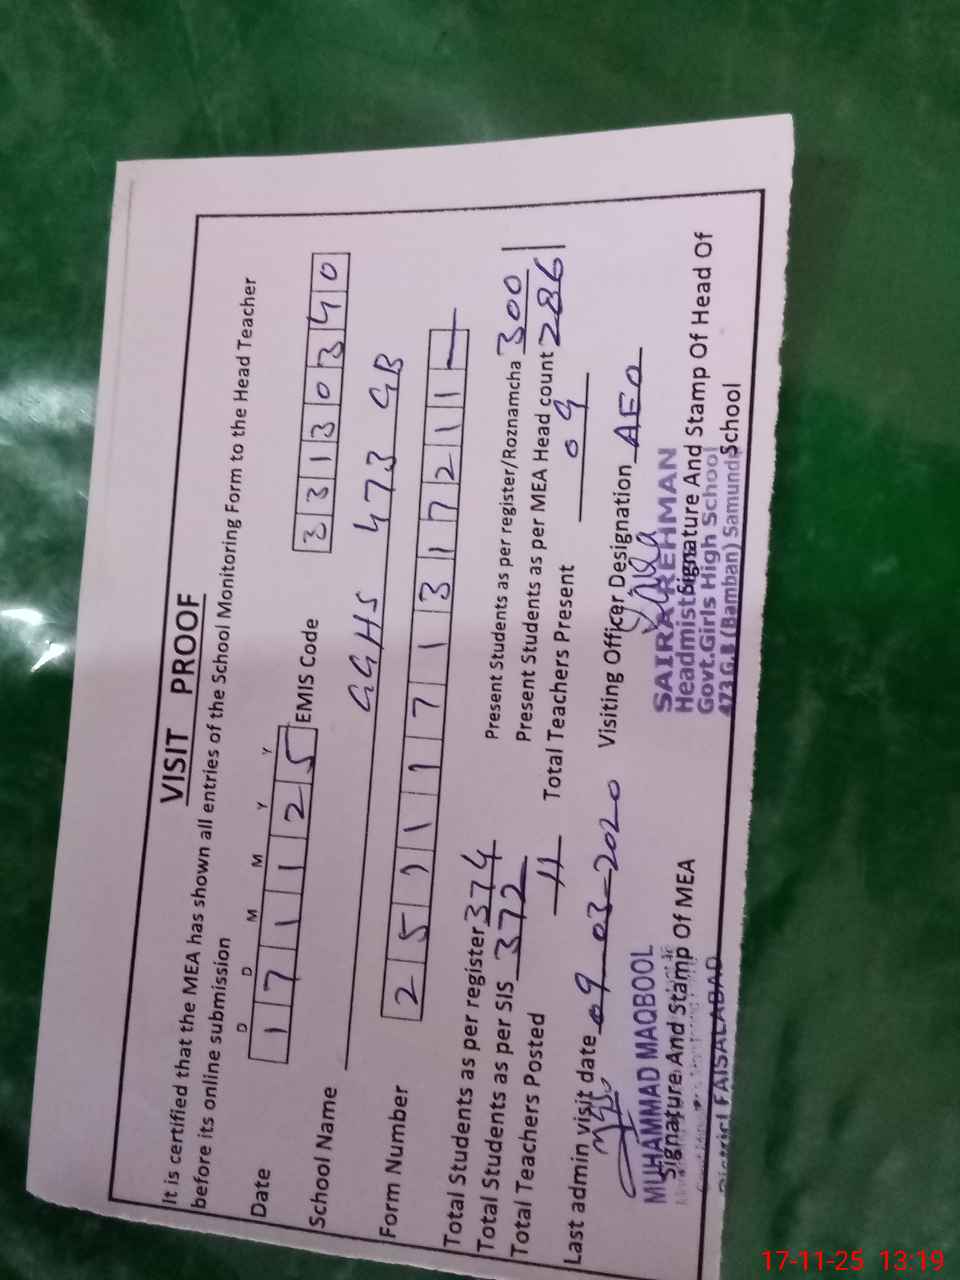 VISIT PROOF
It is certified that the MEA has shown all entries of the School Monitoring Form to the Head Teacher
before its online submission
D D M M Y Y
Date 171125 EMIS Code 33130340
School Name GGHS 473 GB
Form Number 2511171317211
Total Students as per register 374 Present Students as per register/Roznamcha 300
Total Students as per SIS 372 Present Students as per MEA Head count 286
Total Teachers Posted 11 Total Teachers Present 09
Last admin visit date 09-03-2020 Visiting Officer Designation AEO
MUHAMMAD MAQBOOL SAIRA REHMAN
Signature And Stamp Of MEA Signature And Stamp Of Head Of
School
Headmist
Govt.Girls High School
473 G.B (Bamban) Samund
District FAISALABAD
17-11-25 13:19